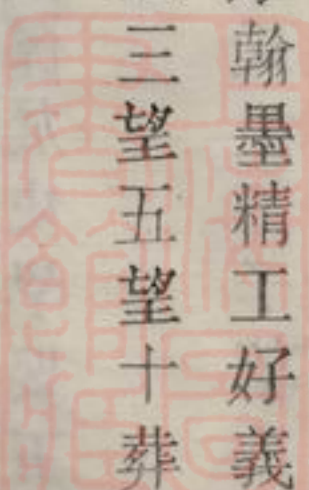 翰墨精工好義
三望五望十葬